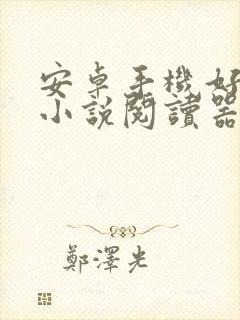 安卓手機好
小說閱讀器
鄭澤光